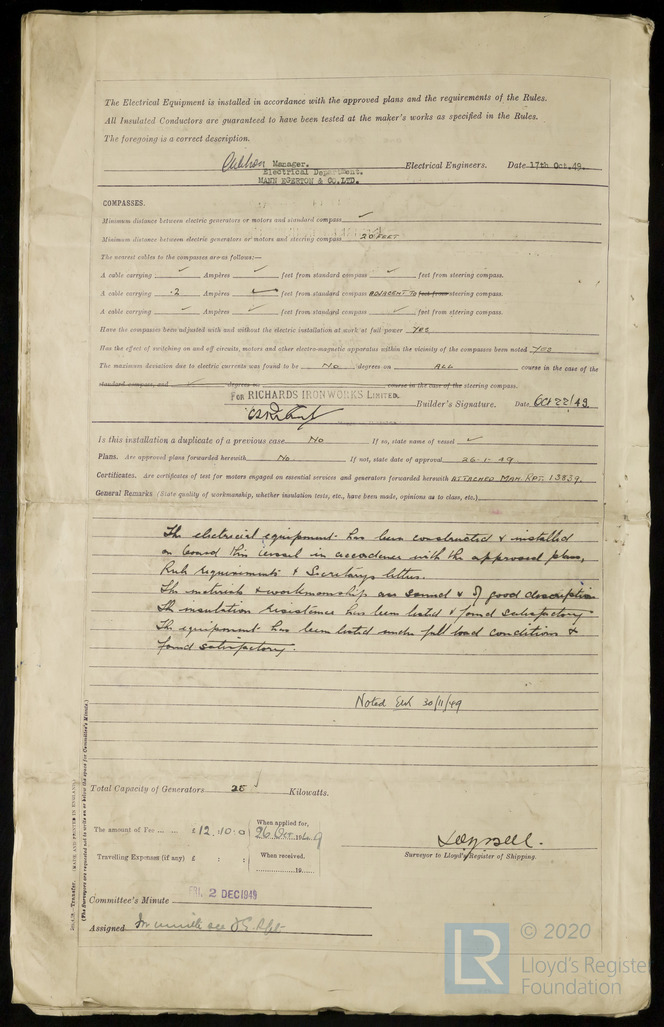 The Electrical Equipment is installed in accordance with the approved plans and the requirements of the Rules.
All Insulated Conductors are guaranteed to have been tested at the maker's works as specified in the Rules.
The foregoing is a correct description.
Manager. Electrical Engineers. Date 17th Oct.49.
Electrical Department.
MANN EGERTON & CO.LTD.
COMPASSES.
Minimum distance between electric generators or motors and standard compass ✓
Minimum distance between electric generators or motors and steering compass 20 FEET
The nearest cables to the compasses are as follows:—
A cable carrying ✓ Ampères ✓ feet from standard compass ✓ feet from steering compass.
A cable carrying .2 Ampères ✓ feet from standard compass ADJACENT TO feet from steering compass.
A cable carrying ✓ Ampères ✓ feet from standard compass ✓ feet from steering compass.
Have the compasses been adjusted with and without the electric installation at work at full power YES
Has the effect of switching on and off circuits, motors and other electro-magnetic apparatus within the vicinity of the compasses been noted YES
The maximum deviation due to electric currents was found to be NO degrees on ALL course in the case of the
standard compass, and ✓ degrees on course in the case of the steering compass.
FOR RICHARDS IRONWORKS LIMITED.
Builder's Signature. Date Oct 22/49.
Is this installation a duplicate of a previous case No If so, state name of vessel ✓
Plans. Are approved plans forwarded herewith No If not, state date of approval 26-1-49
Certificates. Are certificates of test for motors engaged on essential services and generators forwarded herewith ATTACHED MAN. RPT. 13839
General Remarks (State quality of workmanship, whether insulation tests, etc., have been made, opinions as to class, etc.)
The electrical equipment has been constructed & installed
on board this vessel in accordance with the approved plans,
Rule requirements & Secretarys letters.
The materials & workmanship are sound & of good description
The insulation resistance has been tested & found satisfactory
The equipment has been tested under full load conditions &
found satisfactory.
Noted 30/11/49
Total Capacity of Generators 25 Kilowatts.
The amount of Fee £12.10.0 When applied for, 26 Oct 1949
Travelling Expenses (if any) £ : : When received. 19
Surveyor to Lloyd's Register of Shipping.
FRI. 2 DEC 1949
Committee's Minute
Assigned
Transfer. (MADE AND PRINTED IN ENGLAND.)
(The Surveyors are requested not to write on or below the space for Committee's Minute.)
LR © 2020
Lloyd's Register
Foundation